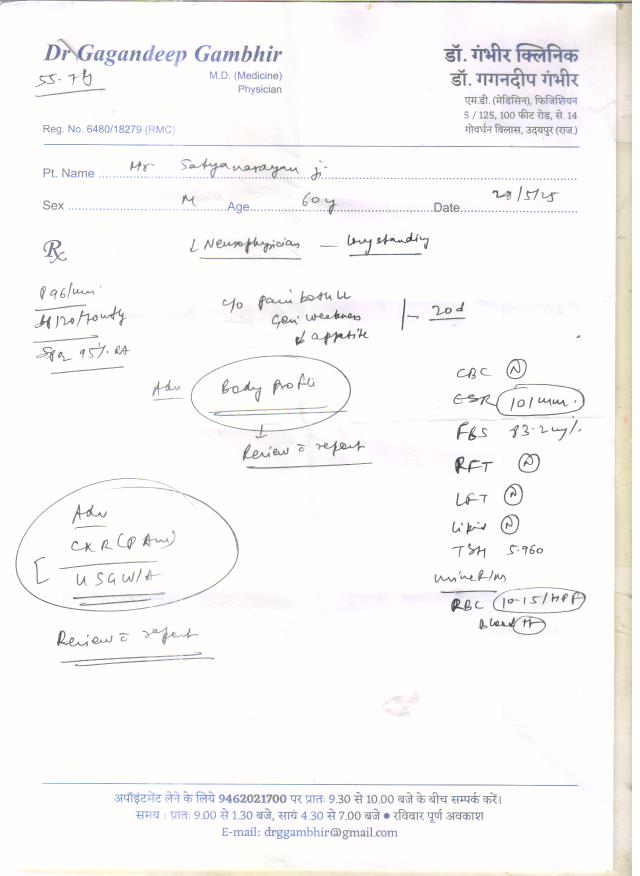 Dr Gagandeep Gambhir
M.D. (Medicine)
Physician
Reg. No. 6480/18279 (RMC)
डॉ. गंभीर क्लिनिक
डॉ. गगनदीप गंभीर
एम.डी. (मेडिसिन), फिजिशियन
5 / 125, 100 फीट रोड, से. 14
गोवर्धन विलास, उदयपुर (राज.)
Pt. Name Mr Satyanarayan ji
Sex M Age 60y Date 28/5/25
Rx
Neurophysician — long standing
P 96/min
120/70mmHg
SpO2 95% RA
c/o pain both
Gen weakness
↓ appetite
20d
Adv
Body profile
↓
Review c̄ report
CBC (N)
ESR 101 mm.
FBS 83.2 mg%
RFT (N)
LFT (N)
Lipid (N)
TSH 5.960
Urine R/M
RBC 10-15/HPF
Blood
Adv
CXR (PA view)
USG W/A
Review c̄ report
अपॉइंटमेंट लेने के लिये 9462021700 पर प्रातः 9.30 से 10.00 बजे के बीच सम्पर्क करें।
समय : प्रातः 9.00 से 1.30 बजे, सायं 4.30 से 7.00 बजे ● रविवार पूर्ण अवकाश
E-mail: drggambhir@gmail.com